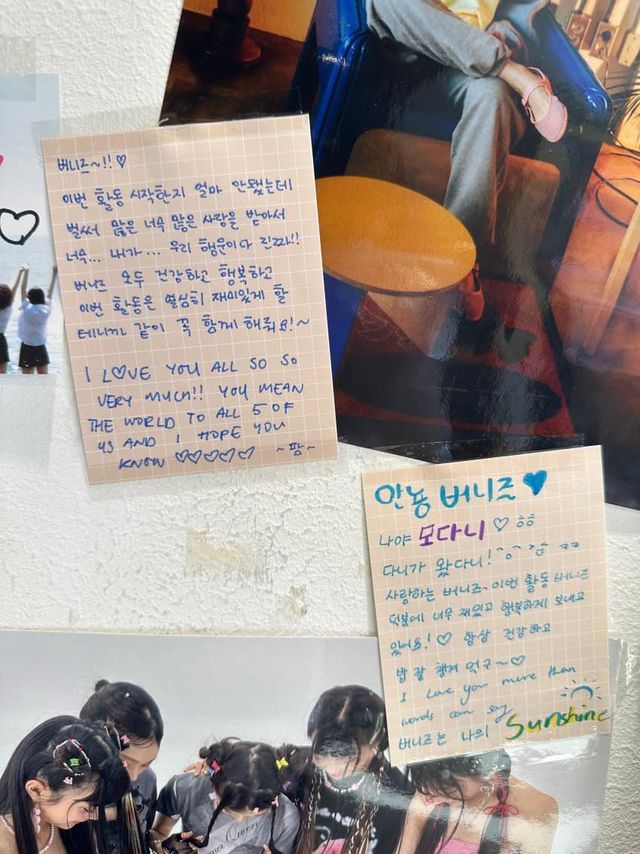 버니즈~!! ♡
이번 활동 시작한지 얼마 안됐는데
벌써 많은 너무 많은 사랑을 받아서
너무... 내가... 우리 행운이다 진짜!!
버니즈 모두 건강하고 행복하고
이번 활동은 열심히 재미있게 할
테니까 같이 꼭 함께 해줘요!~
I L♡VE YOU ALL SO SO
VERY MUCH!! YOU MEAN
THE WORLD TO ALL 5 OF
US AND I HOPE YOU
KNOW ♡♡♡♡♡ ~팜~
안뇽 버니즈 ♥
나야 모다니 ♡ ㅎㅎ
다니가 왔다니! ㅋㅋ
사랑하는 버니즈~ 이번 활동 버니즈
덕분에 너무 재밌고 행복하게 보내고
있어요! ♡ 항상 건강하고
밥 잘 챙겨 먹구~♡
I love you more than
words can say
버니즈는 나의 Sunshine
Queen